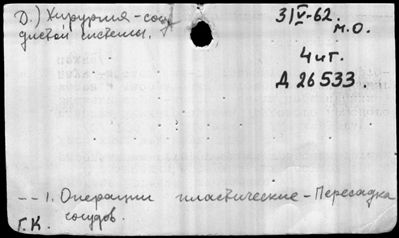 Д.) Хирургия - сосу
дистой системы.
3/V-62.
М.О.
4 иг.
Д 26533.
-- 1. Операции пластические - Пересадка
сосудов.
Г.К.